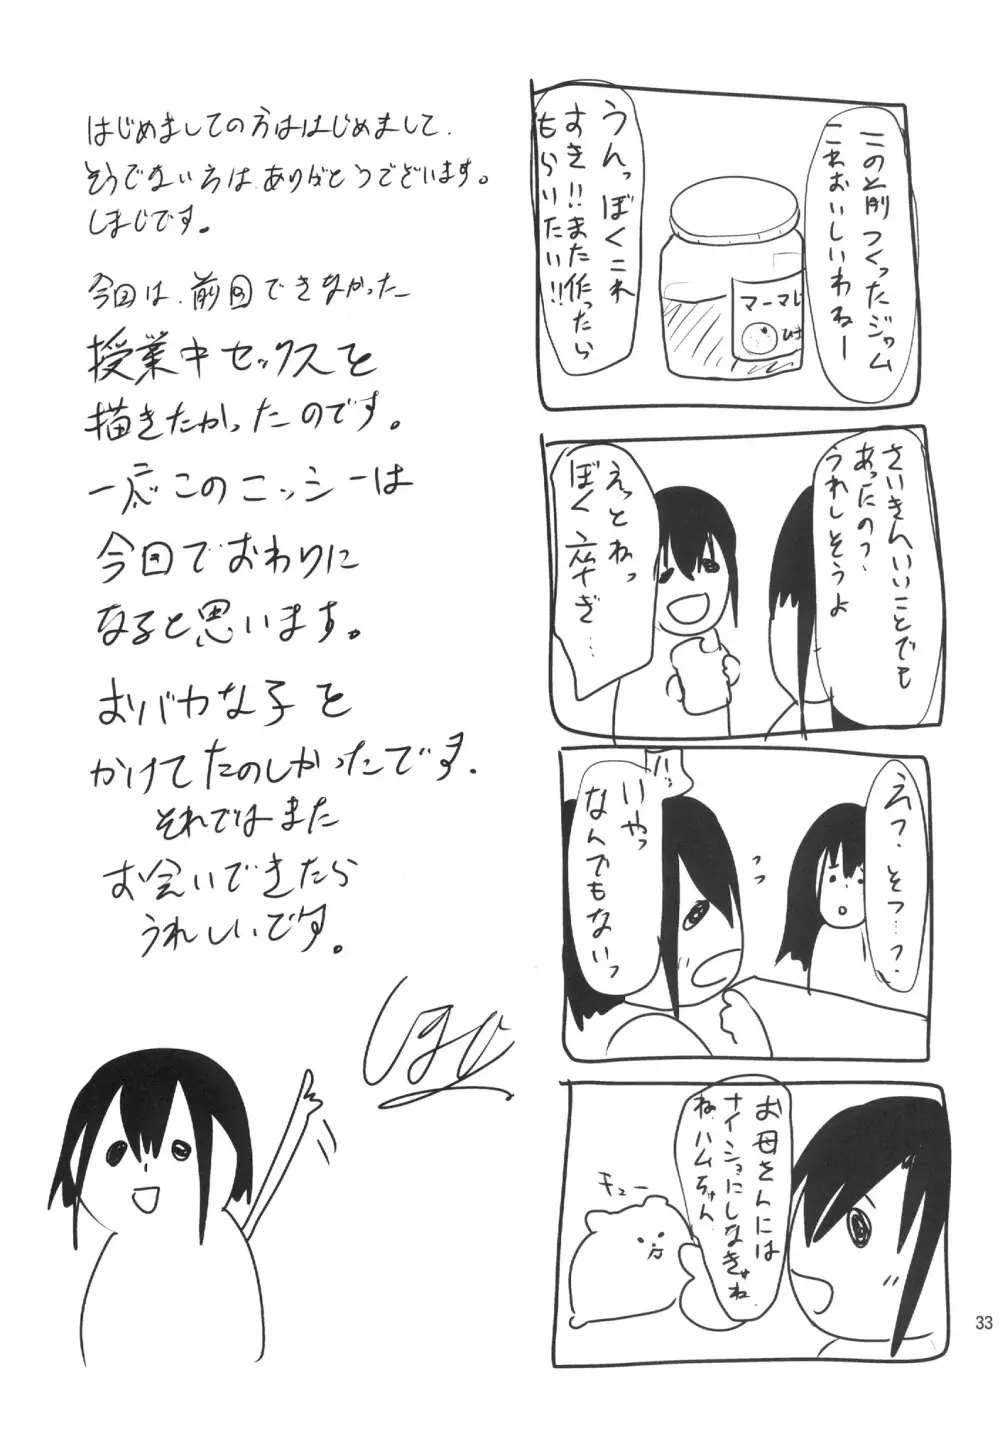 この前つくったジャム
これおいしいわねー
うんっぼくこれ
すき!!また作ったら
もらいたい!!
マーマレ
さいきんいいことでも
あったの?
うれしそうよ
えっとねっ
ぼく
えっ、そつ…?
ハッ
いやっ
なんでもないっ
お母さんには
ナイショにしなきゃね
ね、ハムちゃん
チュー
はじめましての方ははじめまして、
そうでない方は、ありがとうございます。
しまじです。
今回は、前回できなかった
授業中セックスを
描きたかったのです。
一応このニッシーは
今回でおわりに
なると思います。
おバカな子を
かけてたのしかったです。
それではまた
お会いできたら
うれしいです。
33